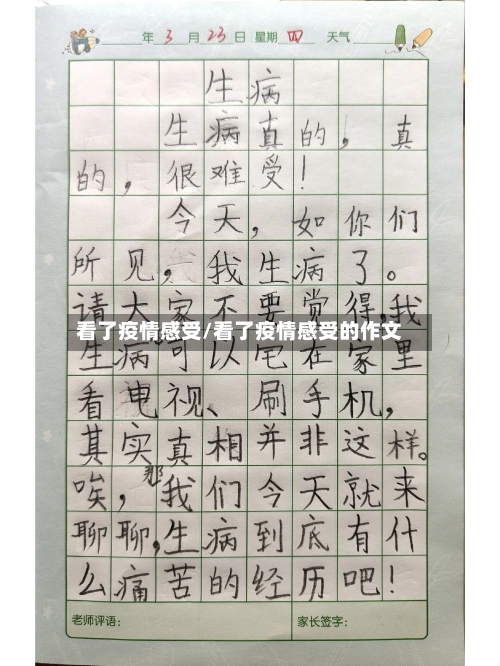 年3月23日 星期 四 天气
生病
生病真的，真
的，很难受！
今天，如你们
所见，我生病了。
请大家不要觉得，我
看了疫情感受/看了疫情感受的作文
生病可以宅在家里
看电视、刷手机，
其实真相并非这样。
唉，那我们今天就来
聊聊，生病到底有什
么痛苦的经历吧！
老师评语： 家长签字：